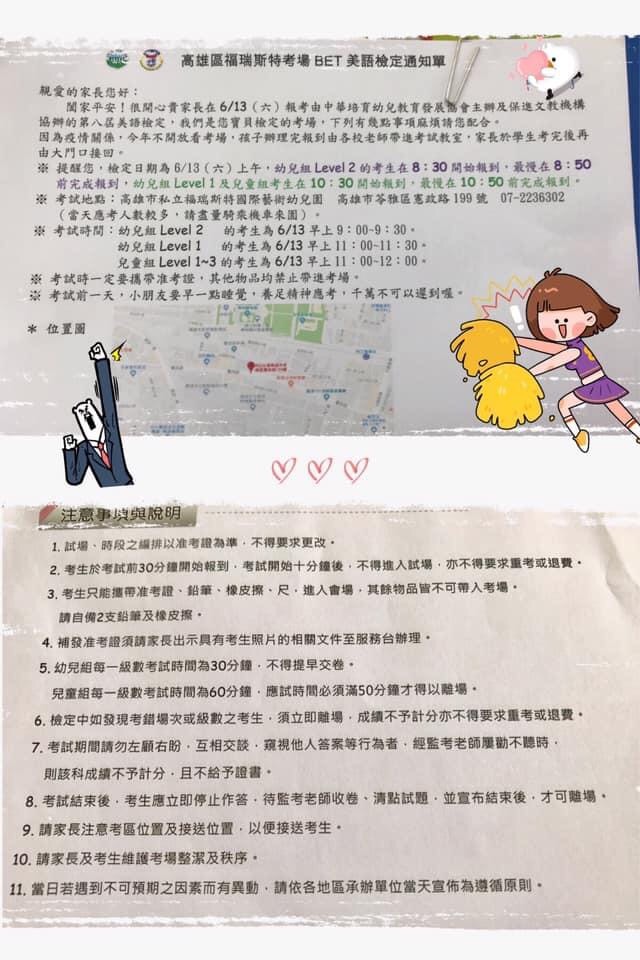 高雄區福瑞斯特考場 BET 美語檢定通知單
親愛的家長您好：
闔家平安！很開心貴家長在 6/13（六）報考由中華培育幼兒教育發展協會主辦及保進文教機構
協辦的第八屆美語檢定，我們是您寶貝檢定的考場，下列有幾點事項麻煩請您配合。
因為疫情關係，今年不開放看考場，孩子辦理完報到由各校老師帶進考試教室，家長於學生考完後再
由大門口接回。
※ 提醒您，檢定日期為 6/13（六）上午，幼兒組 Level 2 的考生在 8：30 開始報到，最慢在 8：50
前完成報到，幼兒組 Level 1 及兒童組考生在 10：30 開始報到，最慢在 10：50 前完成報到。
※ 考試地點：高雄市私立福瑞斯特國際藝術幼兒園 高雄市苓雅區憲政路 199 號 07-2236302
（當天應考人數較多，請盡量騎乘機車來園）。
※ 考試時間：幼兒組 Level 2 的考生為 6/13 早上 9：00~9：30。
幼兒組 Level 1 的考生為 6/13 早上 11：00~11：30。
兒童組 Level 1~3 的考生為 6/13 早上 11：00~12：00。
※ 考試時一定要攜帶准考證，其他物品均禁止帶進考場。
※ 考試前一天，小朋友要早一點睡覺，養足精神應考，千萬不可以遲到喔。
* 位置圖
注意事項與說明
1. 試場、時段之編排以准考證為準，不得要求更改。
2. 考生於考試前30分鐘開始報到，考試開始十分鐘後，不得進入試場，亦不得要求重考或退費。
3. 考生只能攜帶准考證、鉛筆、橡皮擦、尺，進入會場，其餘物品皆不可帶入考場。
請自備2支鉛筆及橡皮擦。
4. 補發准考證須請家長出示具有考生照片的相關文件至服務台辦理。
5. 幼兒組每一級數考試時間為30分鐘，不得提早交卷。
兒童組每一級數考試時間為60分鐘，應試時間必須滿50分鐘才得以離場。
6. 檢定中如發現考錯場次或級數之考生，須立即離場，成績不予計分亦不得要求重考或退費。
7. 考試期間請勿左顧右盼，互相交談，窺視他人答案等行為者，經監考老師屢勸不聽時，
則該科成績不予計分，且不給予證書。
8. 考試結束後，考生應立即停止作答，待監考老師收卷、清點試題，並宣布結束後，才可離場。
9. 請家長注意考區位置及接送位置，以便接送考生。
10. 請家長及考生維護考場整潔及秩序。
11. 當日若遇到不可預期之因素而有異動，請依各地區承辦單位當天宣佈為遵循原則。